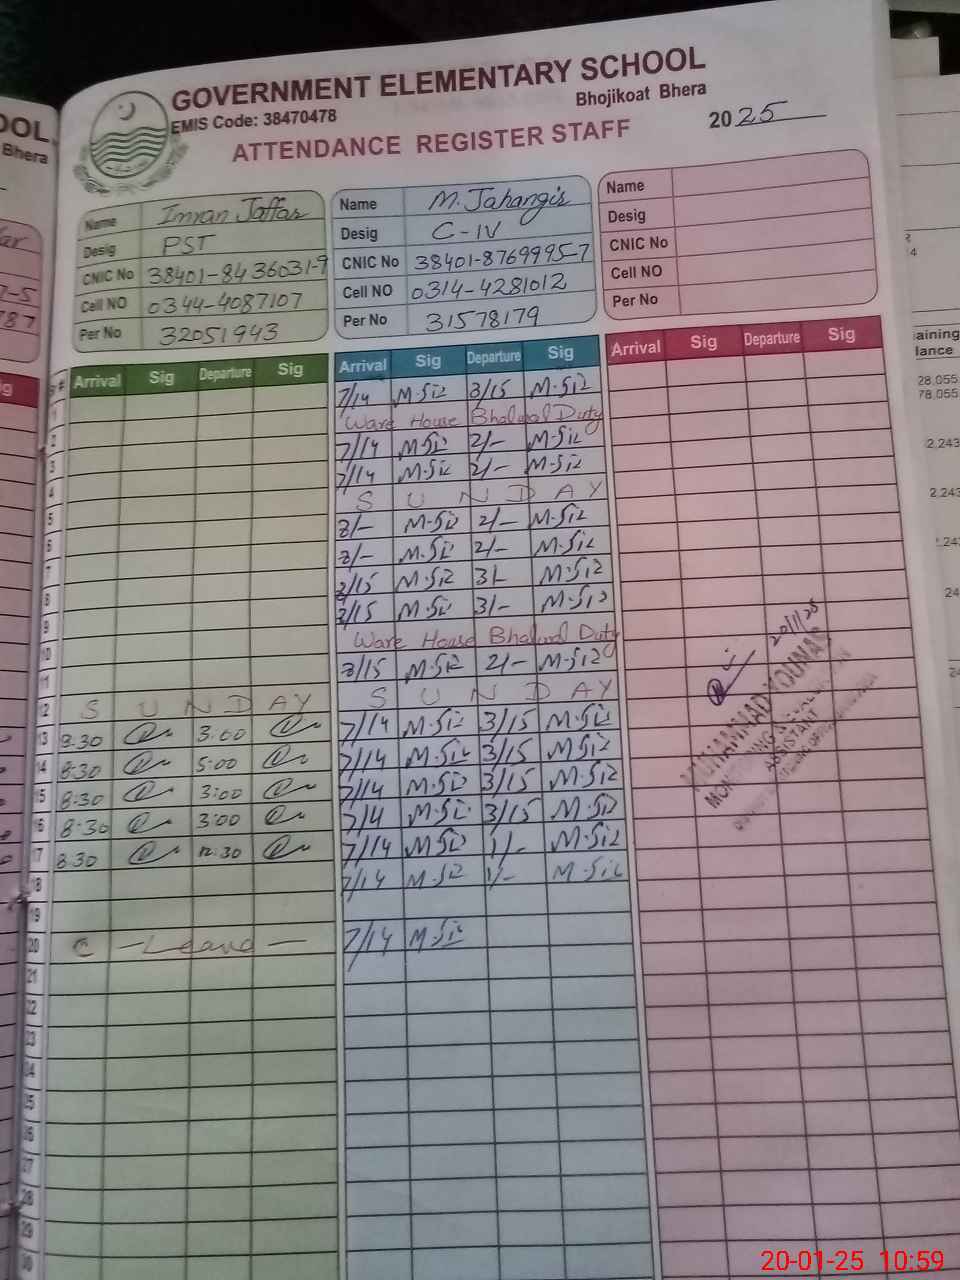 GOVERNMENT ELEMENTARY SCHOOL
EMIS Code: 38470478 Bhojikoat Bhera
ATTENDANCE REGISTER STAFF 2025
OOL
Bhera
Name Imran Jaffar
Desig PST
CNIC No 38401-8436031-9
Cell NO 0344-4087107
Per No 32051943
Name M. Jahangir
Desig C-IV
CNIC No 38401-8769995-7
Cell NO 0314-4281012
Per No 31578179
Name
Desig
CNIC No
Cell NO
Per No
Sr# Arrival Sig Departure Sig Arrival Sig Departure Sig Arrival Sig Departure Sig
1 7/14 3/15
2 Ware House Bhalwal Duty
3 7/14 2/-
4 7/14 2/-
5 SUNDAY
6 8/- 2/-
7 8/- 2/-
8 8/15 3/-
9 8/15 3/-
10 Ware House Bhalwal Duty
11 8/15 2/-
12 SUNDAY SUNDAY
13 8:30 3:00 7/14 3/15
14 8:30 5:00 7/14 3/15
15 8:30 3:00 7/14 3/15
16 8:30 3:00 7/14 3/15
17 8:30 12:30 7/14 1/-
18 7/14 1/-
19
20 C - Leave - 7/14
21
22
23
24
25
26
27
28
29
30
20/1/25
MUHAMMAD YOUNAS
MONITORING
ASSISTANT
aining
lance
28,055
78,055
2,243
2,243
20-01-25 10:59